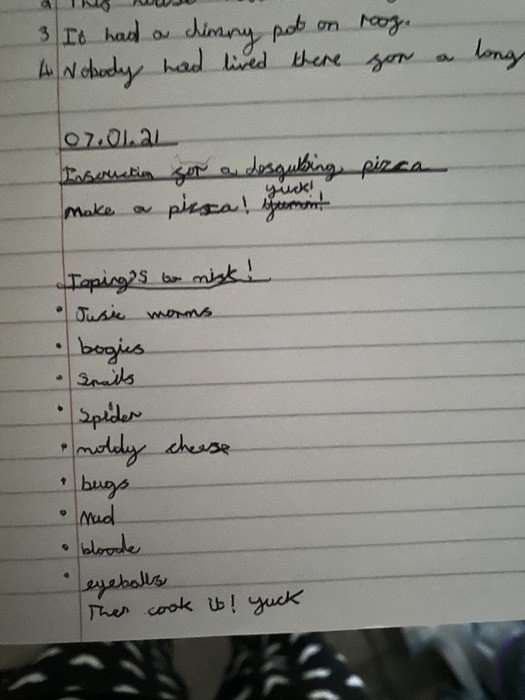 3 It had a chimny pot on roof.
4. Nobody had lived there for a long
07.01.21
Insruction for a desgubing pizza
yuck!
Make a pizza! Yumm!
Toping's to misk!
• Jusie worms
• bogies
• Snails
• Spider
• moldy cheese
• bugs
• Mud
• bloode
• eyeballs
Then cook it! yuck